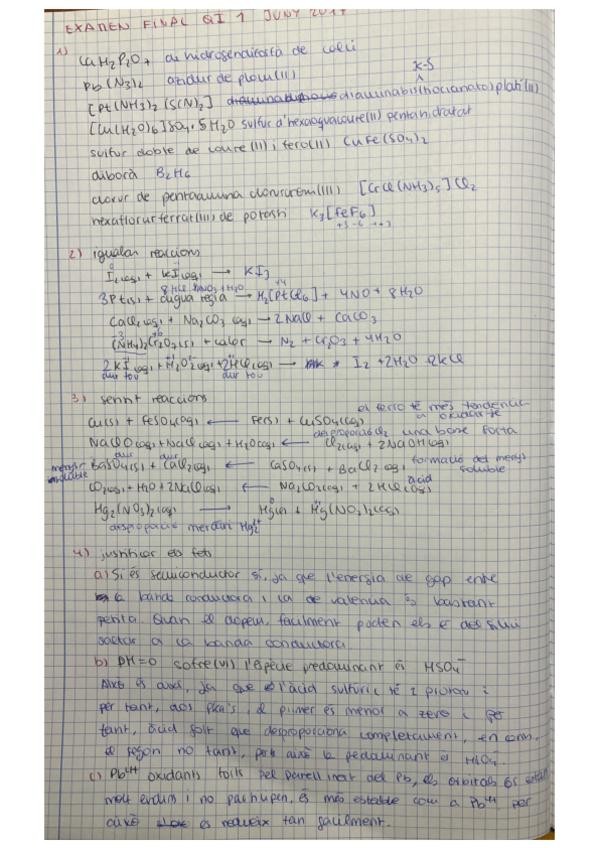 EXAMEN FINAL QI 1 JUNY 2017
1)
CaH2P2O7 dihidrogendifosfat de calci
Pb(N3)2 azidur de plom(II)
K-S
[Pt(NH3)2(SCN)2] diamminabis(tiocianato)platí(II)
[Cu(H2O)6]SO4·5H2O sulfur d'hexaaquacoure(II) pentahidratat
sulfur doble de coure(II) i ferro(II) CuFe(SO4)2
diborà B2H6
clorur de pentaammina clorurcrom(III) [CrCl(NH3)5]Cl2
hexafluorurferrat(III) de potassi K3[FeF6]
+3 -6 → -3
2) igualar reaccions
I2(aq) + KI(aq) → KI3
8HCl HNO3 + H2O
3Pt(s) + aigua regia → H2[PtCl6] + 4NO + 8H2O
CaCl2(aq) + Na2CO3(aq) → 2NaCl + CaCO3
(NH4)2Cr2O7(s) + calor → N2 + Cr2O3 + 4H2O
2KI(aq) + H2O2(aq) + 2HCl(aq) → I2 + 2H2O 2KCl
dur tou dur tou
3) sentit reaccions
el ferro té més tendència a oxidar-se
Cu(s) + FeSO4(aq) ← Fe(s) + CuSO4(aq)
desproporció Cl2 una base forta
NaClO(aq) + NaCl(aq) + H2O(aq) ← Cl2(aq) + 2NaOH(aq)
dur dur
BaSO4(s) + CaCl2(aq) ← CaSO4(s) + BaCl2(aq) formació del menys soluble
menys soluble
àcid
CO2(aq) + H2O + 2NaCl(aq) ← Na2CO3(aq) + 2HCl(aq)
Hg2(NO3)2(aq) → Hg(l) + Hg(NO3)2(aq)
desproporció mercuri Hg2 2+
4) justificar els fets
a) Si és semiconductor sí, ja que l'energia de gap entre
la banda conductora i la de valència és bastant
petita. Quan el dopem, fàcilment poden els e- del silici
saltar a la banda conductora.
b) pH=0 sofre(VI) l'espècie predominant és HSO4-
Això és així, ja que l'àcid sulfúric té 2 protons i
per tant, dos pKa's, el primer és menor a zero i per
tant, àcid fort que desproporciona completament, en canvi,
el segon no tant, per això la predominant és HSO4-
c) Pb4+ oxidants forts pel parell inert del Pb, els orbitals 6s estan
molt endins i no participen, és més estable com a Pb2+ per
això es redueix tan fàcilment.